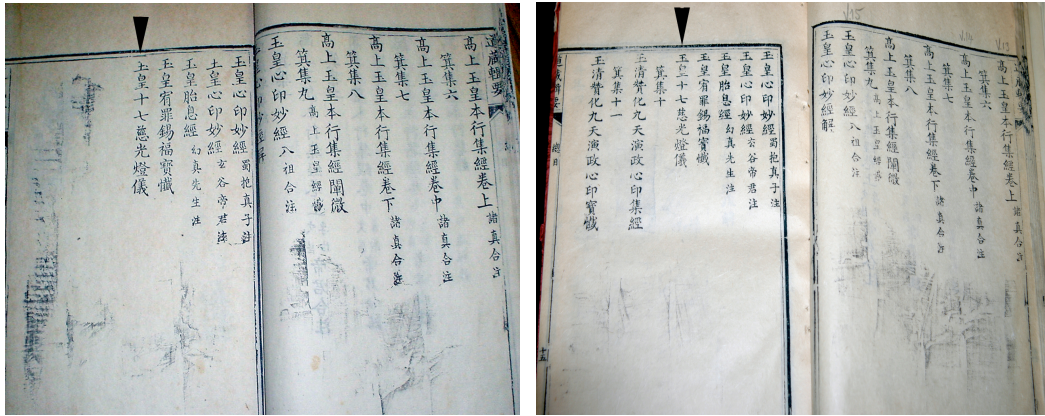 道藏輯要
高上玉皇本行集經卷上 諸真合注
箕集六
高上玉皇本行集經卷中 諸真合注
箕集七
高上玉皇本行集經卷下 諸真合注
箕集八
高上玉皇本行集經闡微
箕集九 高上玉皇經
玉皇心印妙經 八祖合注
玉皇心印妙經解
玉皇心印妙經 蜀抱真子註
玉皇心印妙經 玄谷帝君注
玉皇胎息經 幻真先生注
玉皇宥罪錫福寶懺
玉皇十七慈光燈儀
V.13
高上玉皇本行集經卷上 諸真合注
箕集六
V.14
高上玉皇本行集經卷中 諸真合注
箕集七
高上玉皇本行集經卷下 諸真合注
箕集八
高上玉皇本行集經闡微
箕集九 高上玉皇經
V.15
玉皇心印妙經 八祖合注
玉皇心印妙經解
玉皇心印妙經 蜀抱真子注
玉皇心印妙經 玄谷帝君注
玉皇胎息經 幻真先生注
玉皇宥罪錫福寶懺
玉皇十七慈光燈儀
箕集十
玉清贊化九天演政心印集經
箕集十一
玉清贊化九天演政心印寶懺
道藏輯要 總目